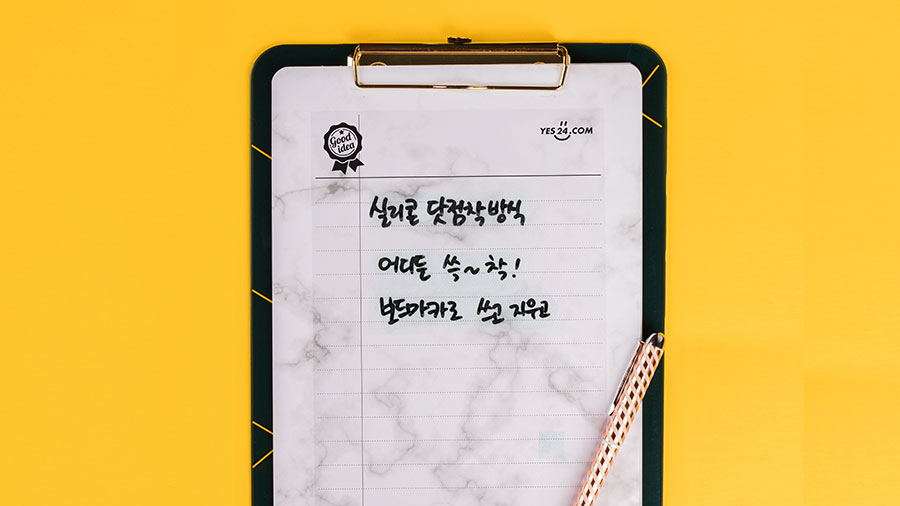 Good idea
YES24.COM
실리콜 닷점착방식
어디든 쓱~착!
보드마카로 쓰고 지우고